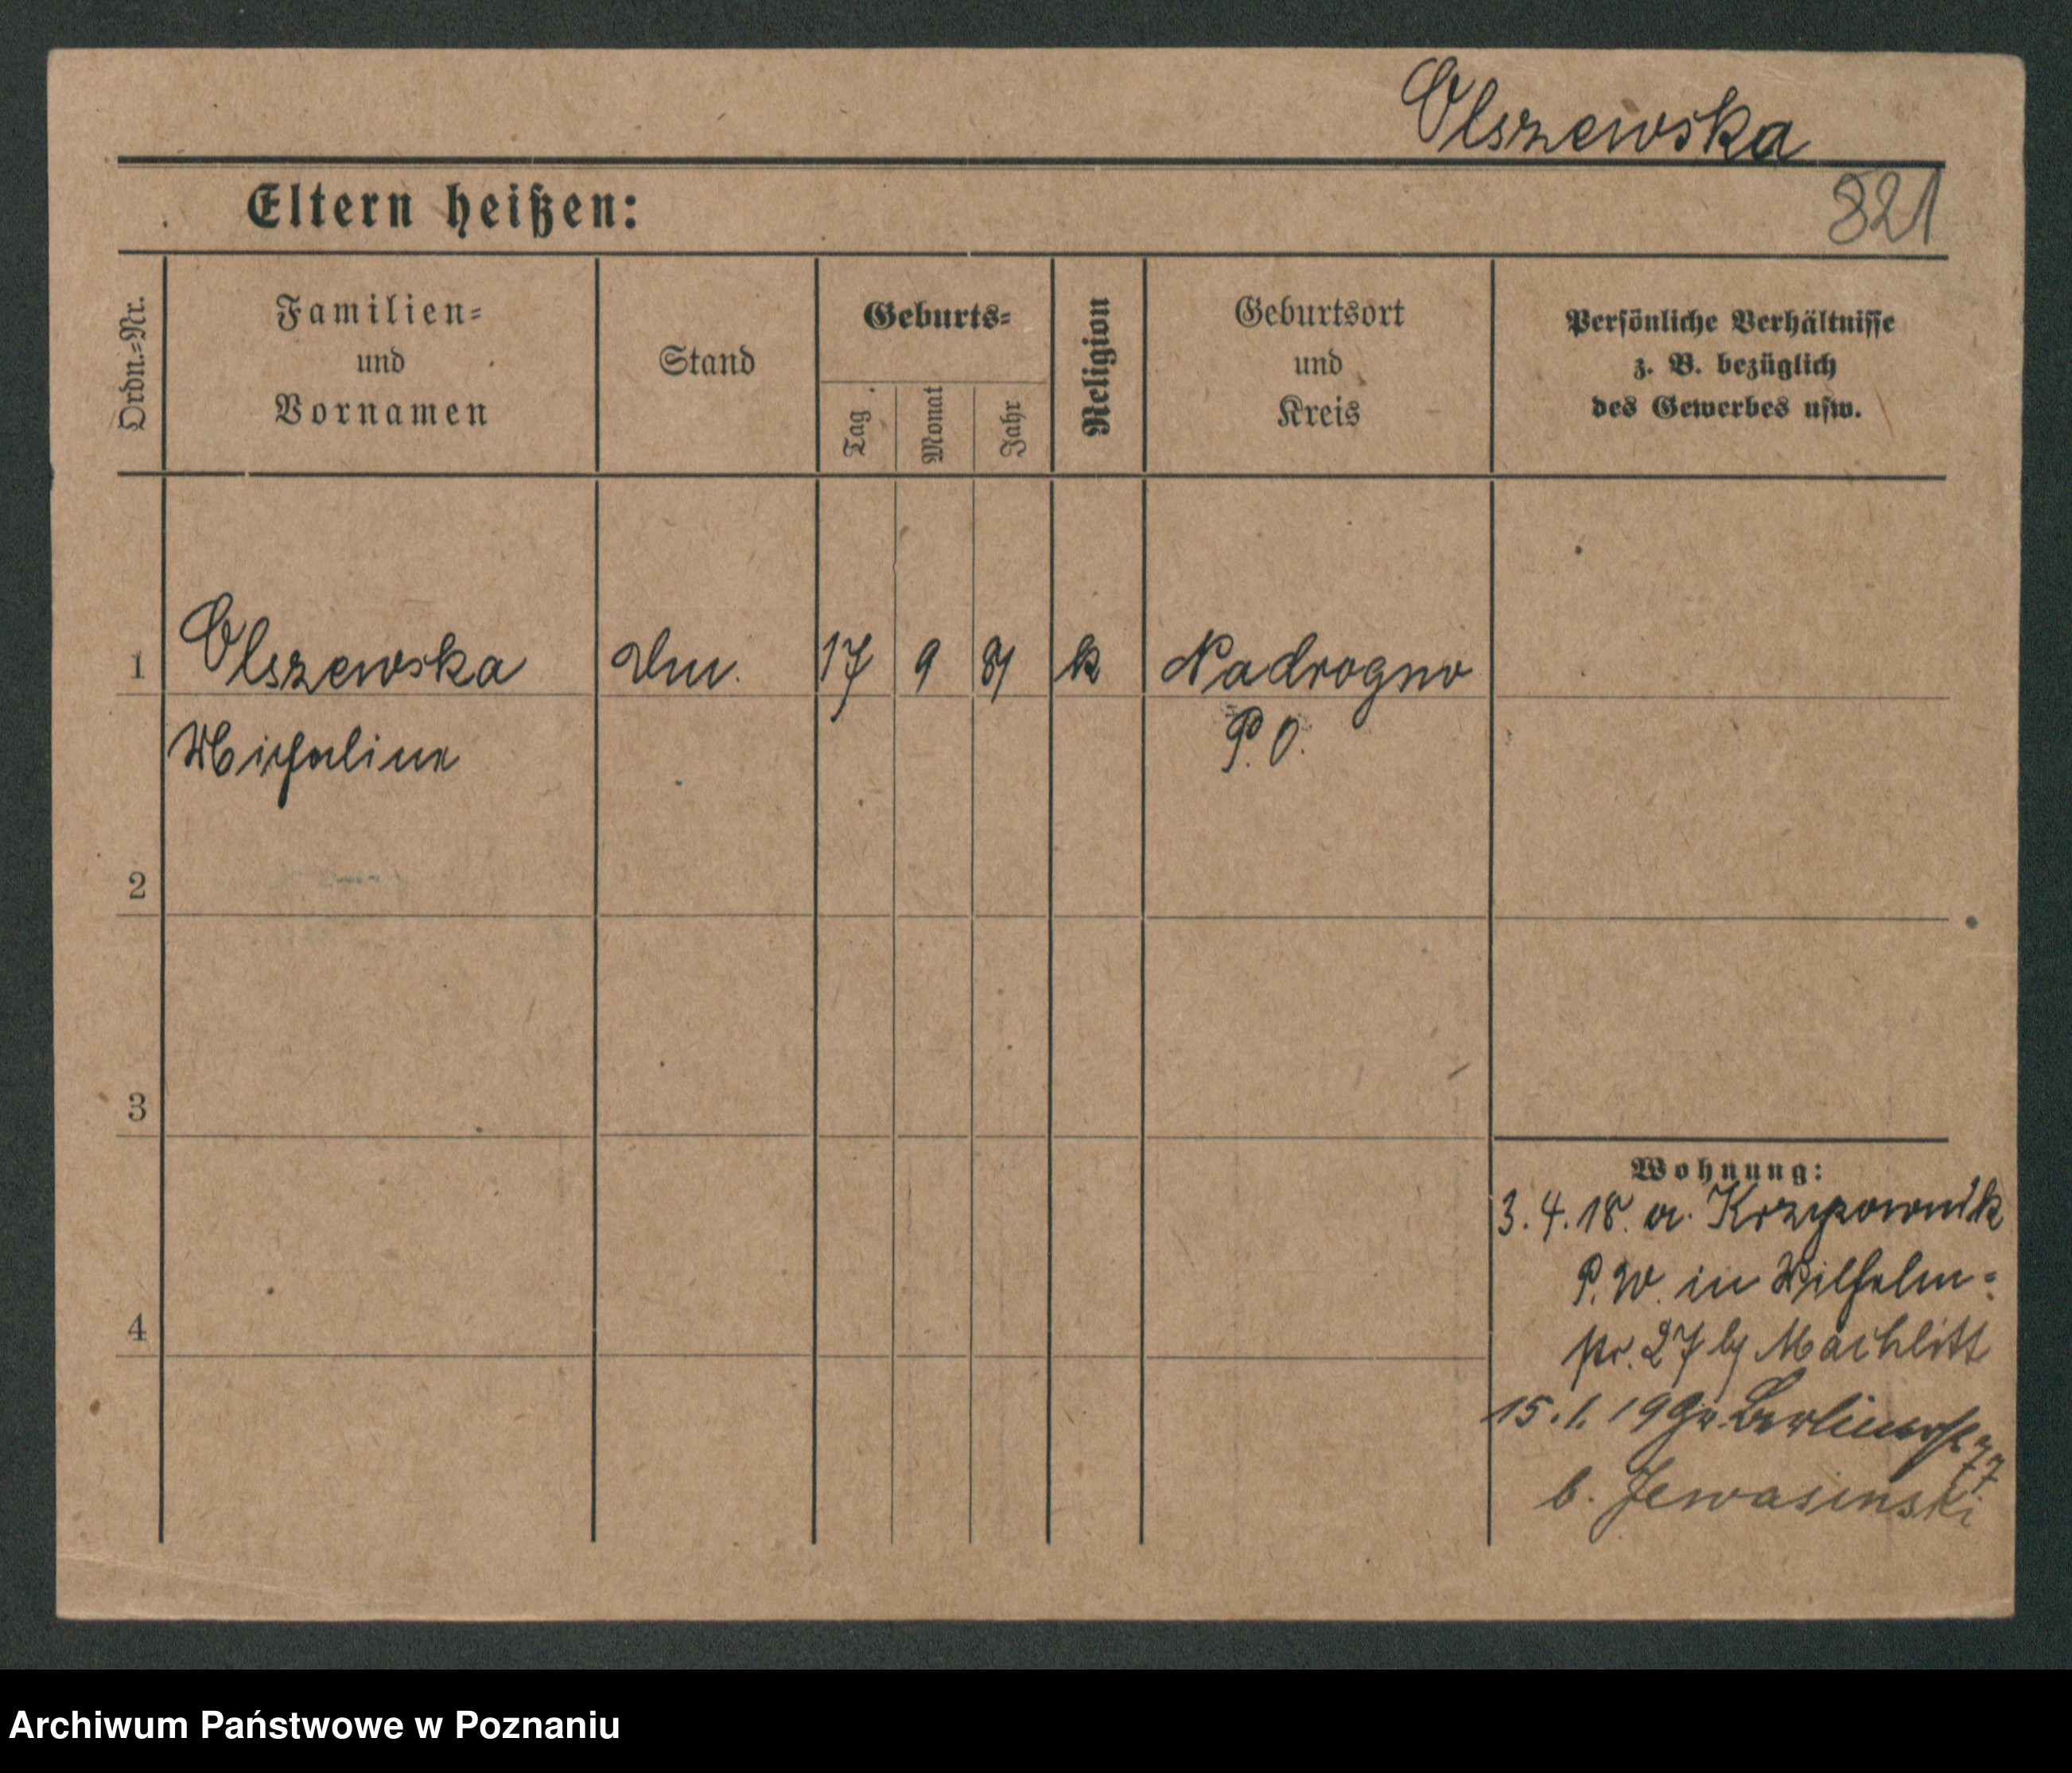 Olszewska
821
Eltern heißen:
Ordn.=Nr.
Familien=
und
Vornamen
Stand
Geburts=
Tag
Monat
Jahr
Religion
Geburtsort
und
Kreis
Persönliche Verhältnisse
z. B. bezüglich
des Gewerbes usw.
1 Olszewska 17 9 81 k Nadrogno
Michaline P. O.
2
3
4
Wohnung:
3. 4. 18. a.
P. W. in Wilhelm=
str. 27 bj Machlitt
15. 1. 19 Gr. Berlinerstr 77
b. Jewasinski
Archiwum Państwowe w Poznaniu